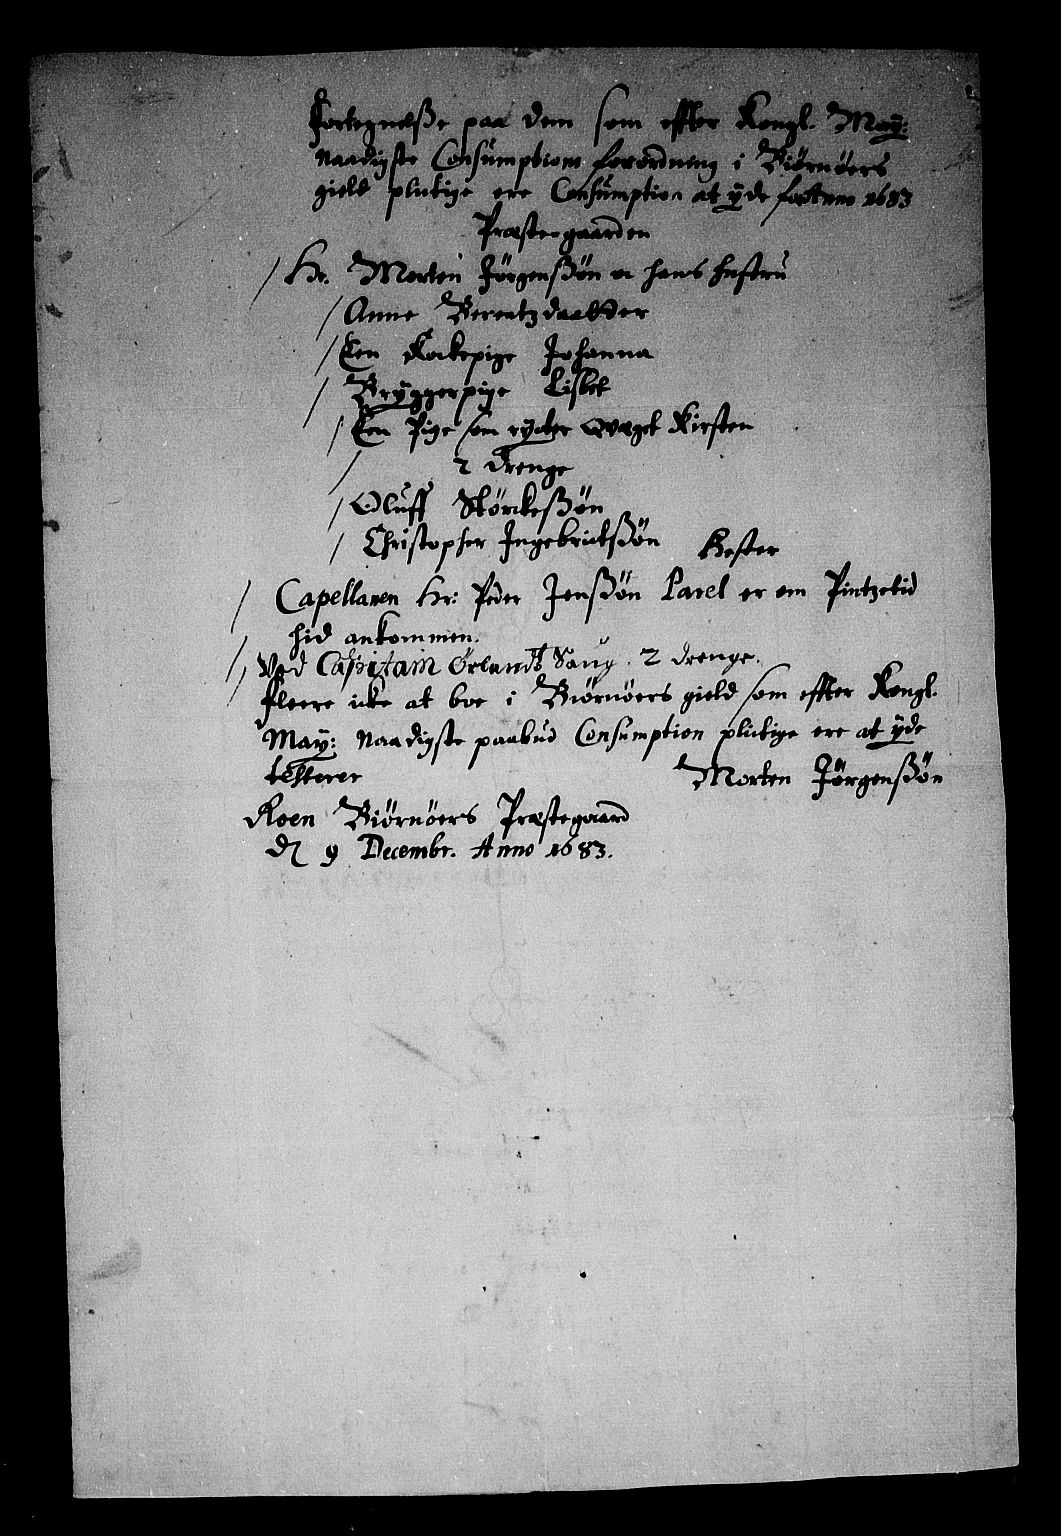 Fortegnelße paa dem som effter Kongl. May:
naadigste Consumptions forordning i Biørnøers
gield plictige ere Consumption at yde for Anno 1683
Præstegaarden
/ Hr. Morten Jörgenßön oc hans hustru
/ Anne Berentzdaatter
/ Een Kockepige Johanna
/ Bryggerpige Lisbet
/ Een Pige som rycter Qvæget Kirsten
/ 2 drenge
/ Oluff Störckeßön
/ Christopher Ingebrictßön Hester
/ Capellanen Hr: Peder Jenßön Parel er om Pintzetid
hid ankommen.
// Ved Capitain Ørlandt Saug. 2 drenge.
fleere icke at boe i Biørnøers gield som effter Kongl.
May: naadigste paabud Consumption plictige ere at yde
testerer Morten Jörgenßön
Roen Biørnøers Præstegaard
d 9 Decembr. Anno 1683.